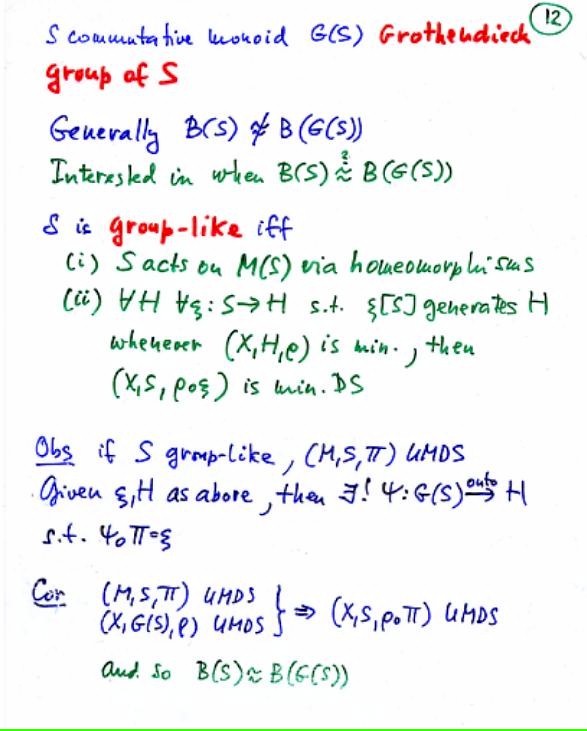 12
S commutative monoid G(S) Grothendieck
group of S
Generally B(S) ≉ B(G(S))
Interested in when B(S) ≈^? B(G(S))
S is group-like iff
(i) S acts on M(S) via homeomorphisms
(ii) ∀H ∀ξ: S→H s.t. ξ[S] generates H
whenever (X,H,ρ) is min., then
(X,S, ρ∘ξ) is min. DS
Obs if S group-like, (M,S,π) UMDS
Given ξ,H as above, then ∃! Ψ: G(S) →^{onto} H
s.t. Ψ∘π=ξ
Cor (M,S,π) UMDS
(X,G(S),ρ) UMDS } ⇒ (X,S,ρ∘π) UMDS
And so B(S)≈B(G(S))